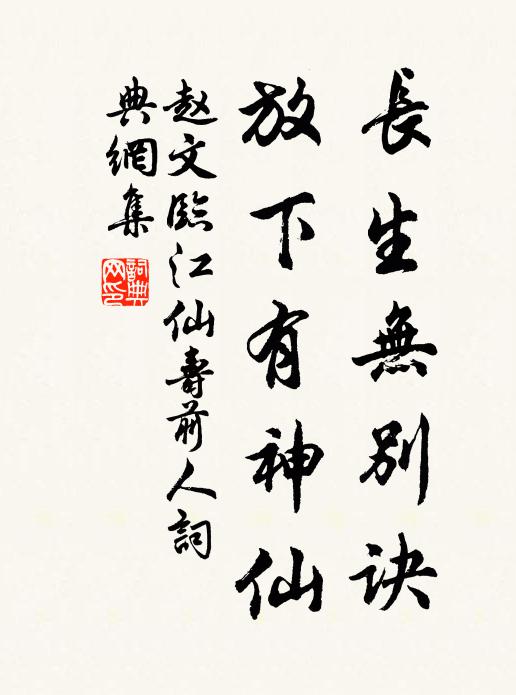 長生無別訣
放下有神仙
赵文臨江仙壽前人詞
典網集
詞典网印